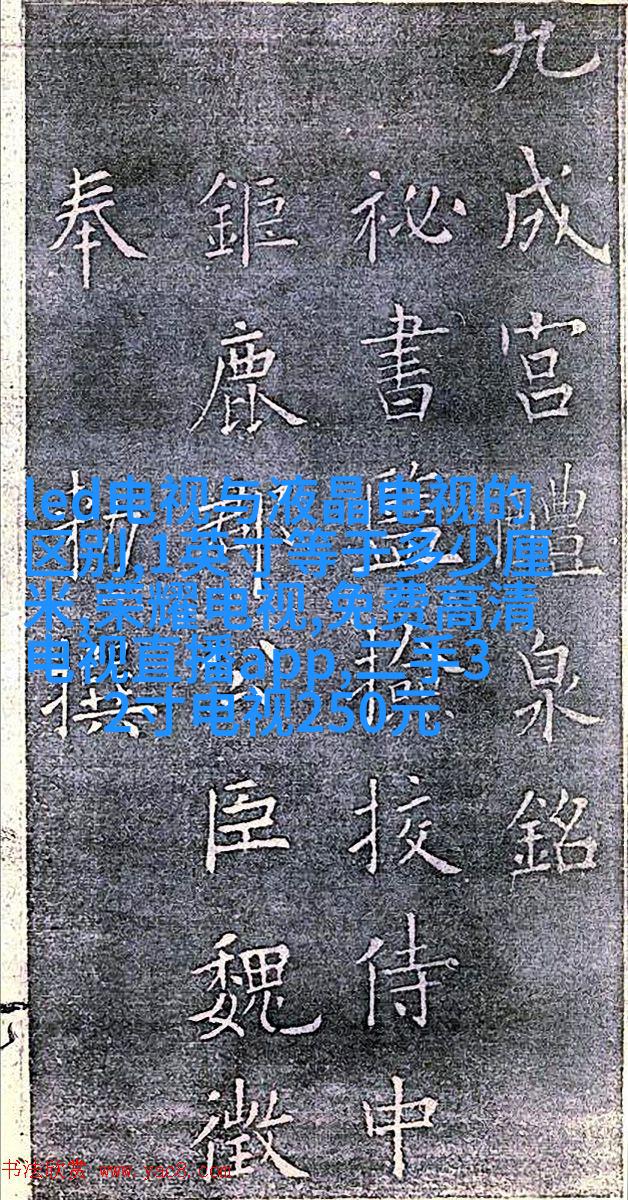 九成宫醴泉銘
祕書監撿挍侍中
鉅鹿郡公臣魏徵
奉勅撰
led电视与液晶电视的
区别,1英寸等于多少厘
米,荣耀电视,免费高清
电视直播app,二手3
2寸电视250元
书法欣赏 www.yac8.com